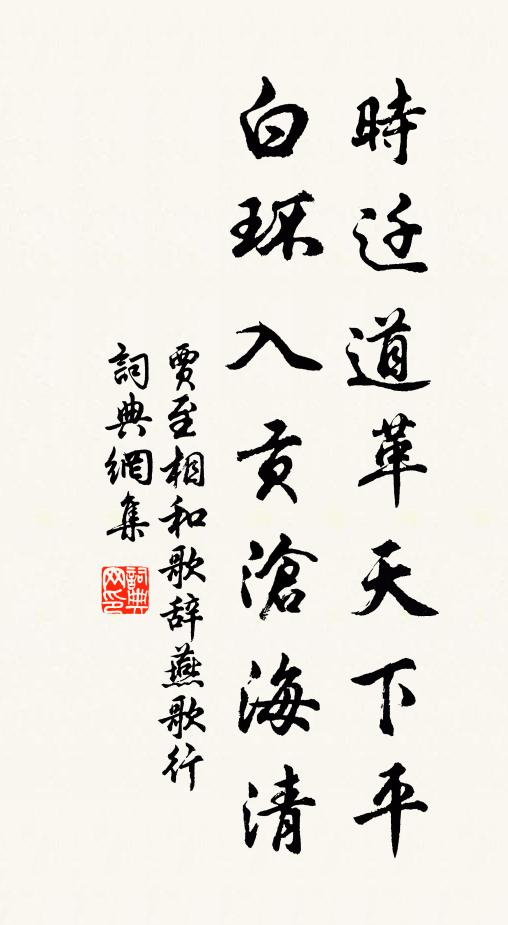 時迁道革天下平
白环入贡滄海清
賈至相和歌辞燕歌行
詞典網集
詞典网印